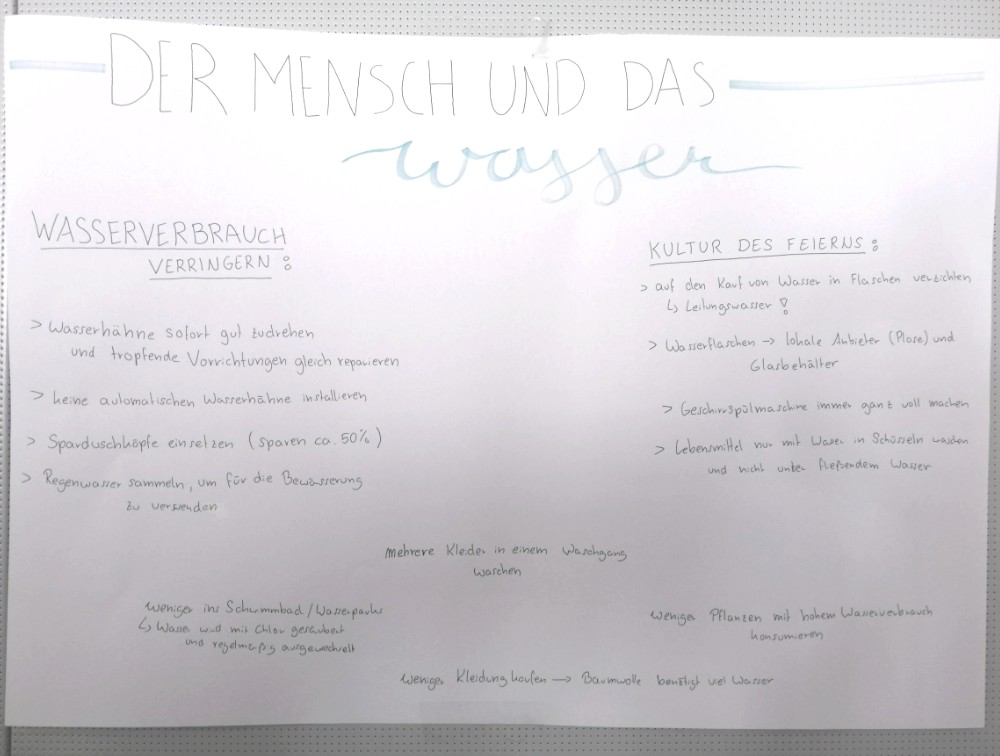 DER MENSCH UND DAS
wasser
WASSERVERBRAUCH
VERRINGERN:
> Wasserhähne sofort gut zudrehen
und tropfende Vorrichtungen gleich reparieren
> keine automatischen Wasserhähne installieren
> Sparduschköpfe einsetzen (sparen ca. 50%)
> Regenwasser sammeln, um für die Bewässerung
zu verwenden
KULTUR DES FEIERNS:
> auf den Kauf von Wasser in Flaschen verzichten
↳ Leitungswasser !
> Wasserflaschen → lokale Anbieter (Plose) und
Glasbehälter
> Geschirrspülmaschine immer ganz voll machen
> Lebensmittel nur mit Wasser in Schüsseln waschen
und nicht unter fließendem Wasser
mehrere Kleider in einem Waschgang
waschen
weniger ins Schwimmbad/Wasserparks
↳ Wasser wird mit Chlor gesäubert
und regelmäßig ausgewechselt
weniger Pflanzen mit hohem Wasserverbrauch
konsumieren
weniger Kleidung kaufen → Baumwolle benötigt viel Wasser